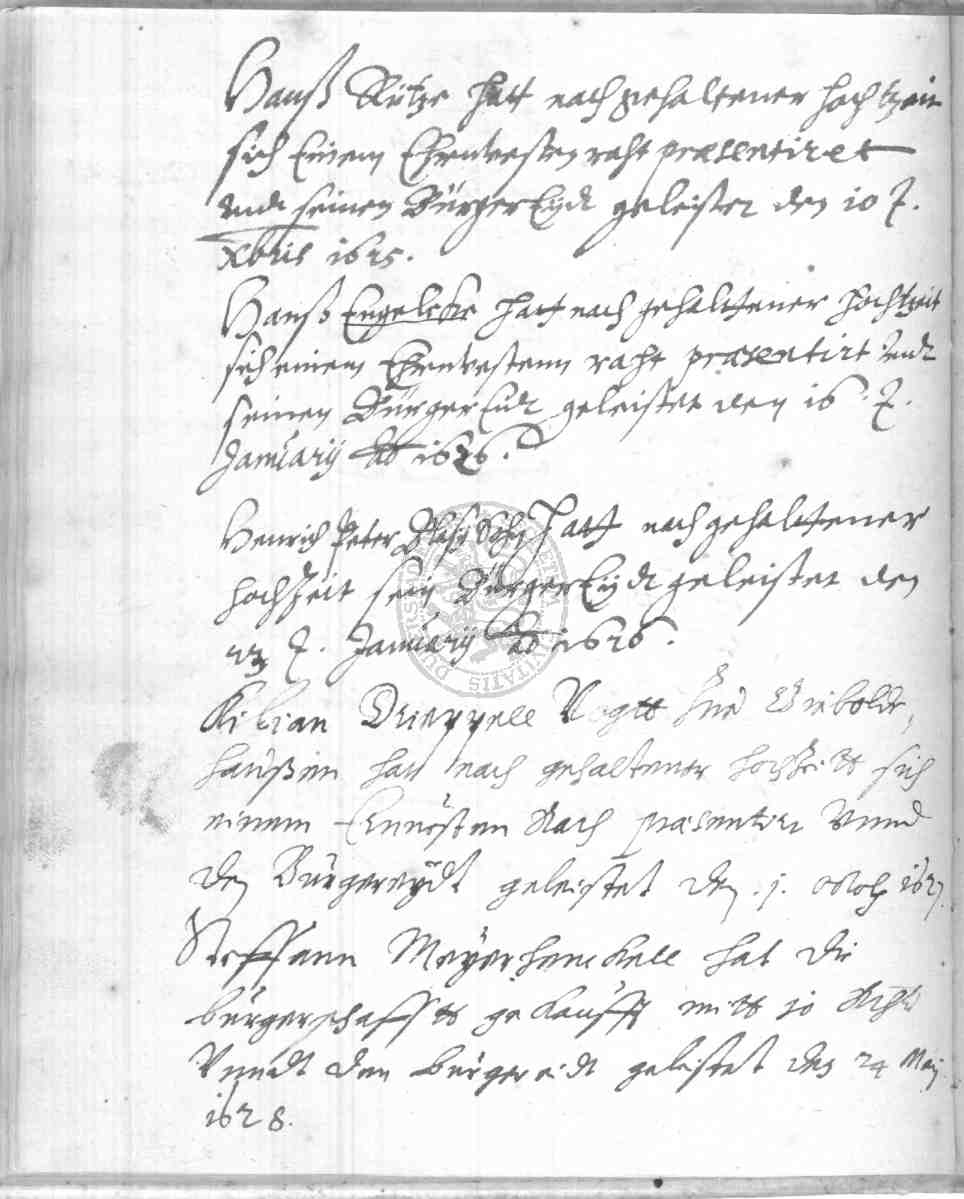 Hanß Kütze hatt nach gehaltener hochtzeit
sich Einem Ehrnvesten raht præsentiret
undt seinen BürgerEydt geleistet den 10 t.
Xbris 1625.
Hanß Engelcke hatt nach gehaltener hochtzeit
sich einem Ehrnvestenn raht præsentirt undt
seinen BürgerEidt geleistet den 16. t.
Januarij Ao 1626.
Henrich Peter hatt nach gehaltener
hochZeit sein BürgerEydt geleistet den
t. Januarij Ao 1626.
Kilian Vogtt Zue Wiebolds,
haußen hatt nach gehaltener hochzeitt sich
einem Ernvesten Rath præsentirt Unnd
den Bürgereydt geleistet den .j. octob 1627.
Steffann Meÿerhenckell hat die
bürgerschafftt gekaufft mitt 10
Unndt den bürgereidt geleistet den 24 Maij
1628.